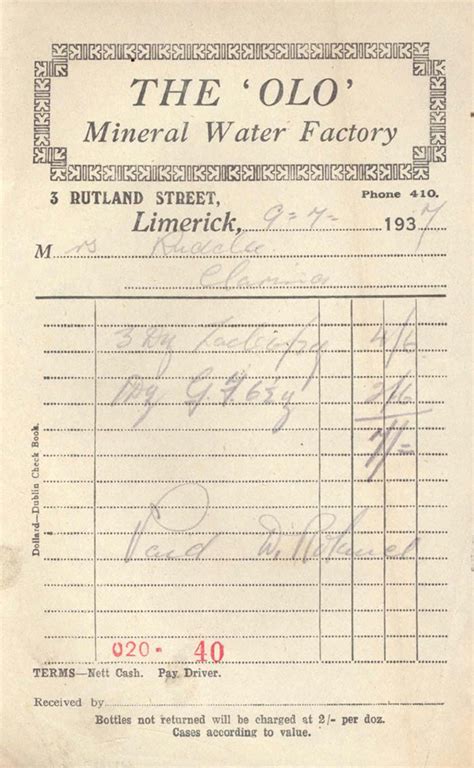 THE ‘OLO’
Mineral Water Factory
3 RUTLAND STREET,
Phone 410.
Limerick, 9-7- 1937
Mrs
Clarina
3 Dz 4/6
1 Dz 2/6
7/-
Paid
Dollard—Dublin Check Book.
020· 40
TERMS—Nett Cash. Pay Driver.
Received by
Bottles not returned will be charged at 2/- per doz.
Cases according to value.